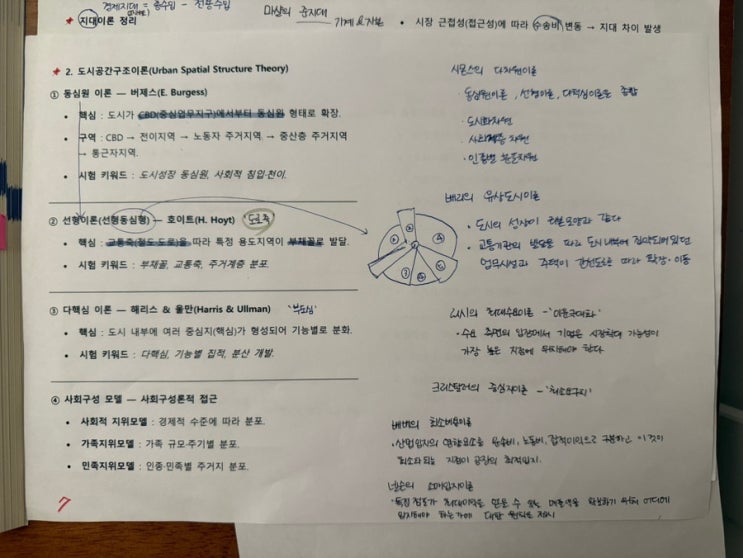 경제지대 = 총수입 - 전용수입
마샬의 준지대
기계 &
지대이론 정리
• 시장 근접성(접근성)에 따라 수송비 변동 → 지대 차이 발생
2. 도시공간구조이론(Urban Spatial Structure Theory)
① 동심원 이론 — 버제스(E. Burgess)
• 핵심 : 도시가 CBD(중심업무지구)에서부터 동심원 형태로 확장.
• 구역 : CBD → 전이지역 → 노동자 주거지역 → 중산층 주거지역
→ 통근자지역.
• 시험 키워드 : 도시성장 동심원, 사회적 침입·천이.
② 선형이론(선형동심형) — 호이트(H. Hoyt) 도로축
• 핵심 : 교통축(철도·도로)을 따라 특정 용도지역이 부채꼴로 발달.
• 시험 키워드 : 부채꼴, 교통축, 주거계층 분포.
③ 다핵심 이론 — 해리스 & 울만(Harris & Ullman) '부도심'
• 핵심 : 도시 내부에 여러 중심지(핵심)가 형성되어 기능별로 분화.
• 시험 키워드 : 다핵심, 기능별 집적, 분산 개발.
④ 사회구성 모델 — 사회구성론적 접근
• 사회적 지위모델 : 경제적 수준에 따라 분포.
• 가족지위모델 : 가족 규모·주기별 분포.
• 민족지위모델 : 인종·민족별 주거지 분포.
7
시몬스의 다차원이론
· 동심원이론, 선형이론, 다핵심이론을 종합
· 도시화차원
· 사회계층 차원
· 인종별 분포차원
베리의 유상도시이론
• 도시의 성장이 리본모양과 같다
• 교통기관의 발달을 따라 도시내부에 집약되어 있던
업무시설과 주택이 간선도로를 따라 확장·이동
뢰시의 최대수요이론 - '이윤극대화'
• 수요 측면의 입장에서 기업은 시장확대 가능성이
가장 높은 지점에 위치해야 한다
크리스탈러의 중심지이론 - '최소요구치'
베버의 최소비용이론
· 산업입지의 영향요소를 운송비, 노동비, 집적이익으로 구분하고 이것이
최소화 되는 지점이 공장의 최적입지.
넬슨의 소매입지이론
· 특정 점포가 최대이익을 얻을 수 있는 매출액을 확보하기 위해 어디에
입지해야 하는가에 대한 원칙을 제시